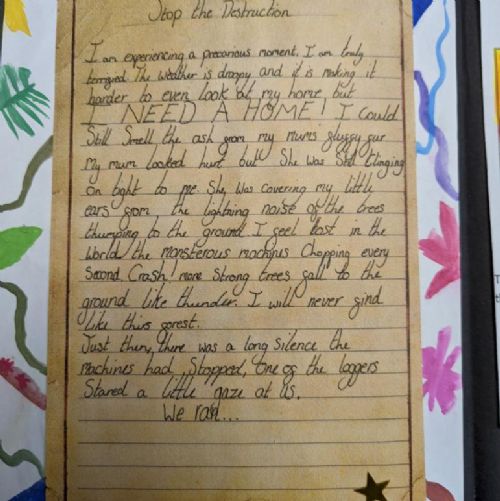 Stop the Destruction
I am experiencing a precarious moment. I am truly
terrified. The weather is droopy and it is making it
harder to even look at my home but
I NEED A HOME! I could
Still Smell the ash from my mums fluffy fur
My mum looked hurt but She was Still Clinging
on tight to me. She was covering my little
ears from the lightning noise of the trees
thumping to the ground. I feel lost in the
World the monsterous machines Chopping every
Second. Crash! more Strong trees fall to the
ground like thunder. I will never find
like this forest.
Just then, there was a long silence the
machines had Stopped, one of the loggers
Stared a little gaze at us.
We ran...